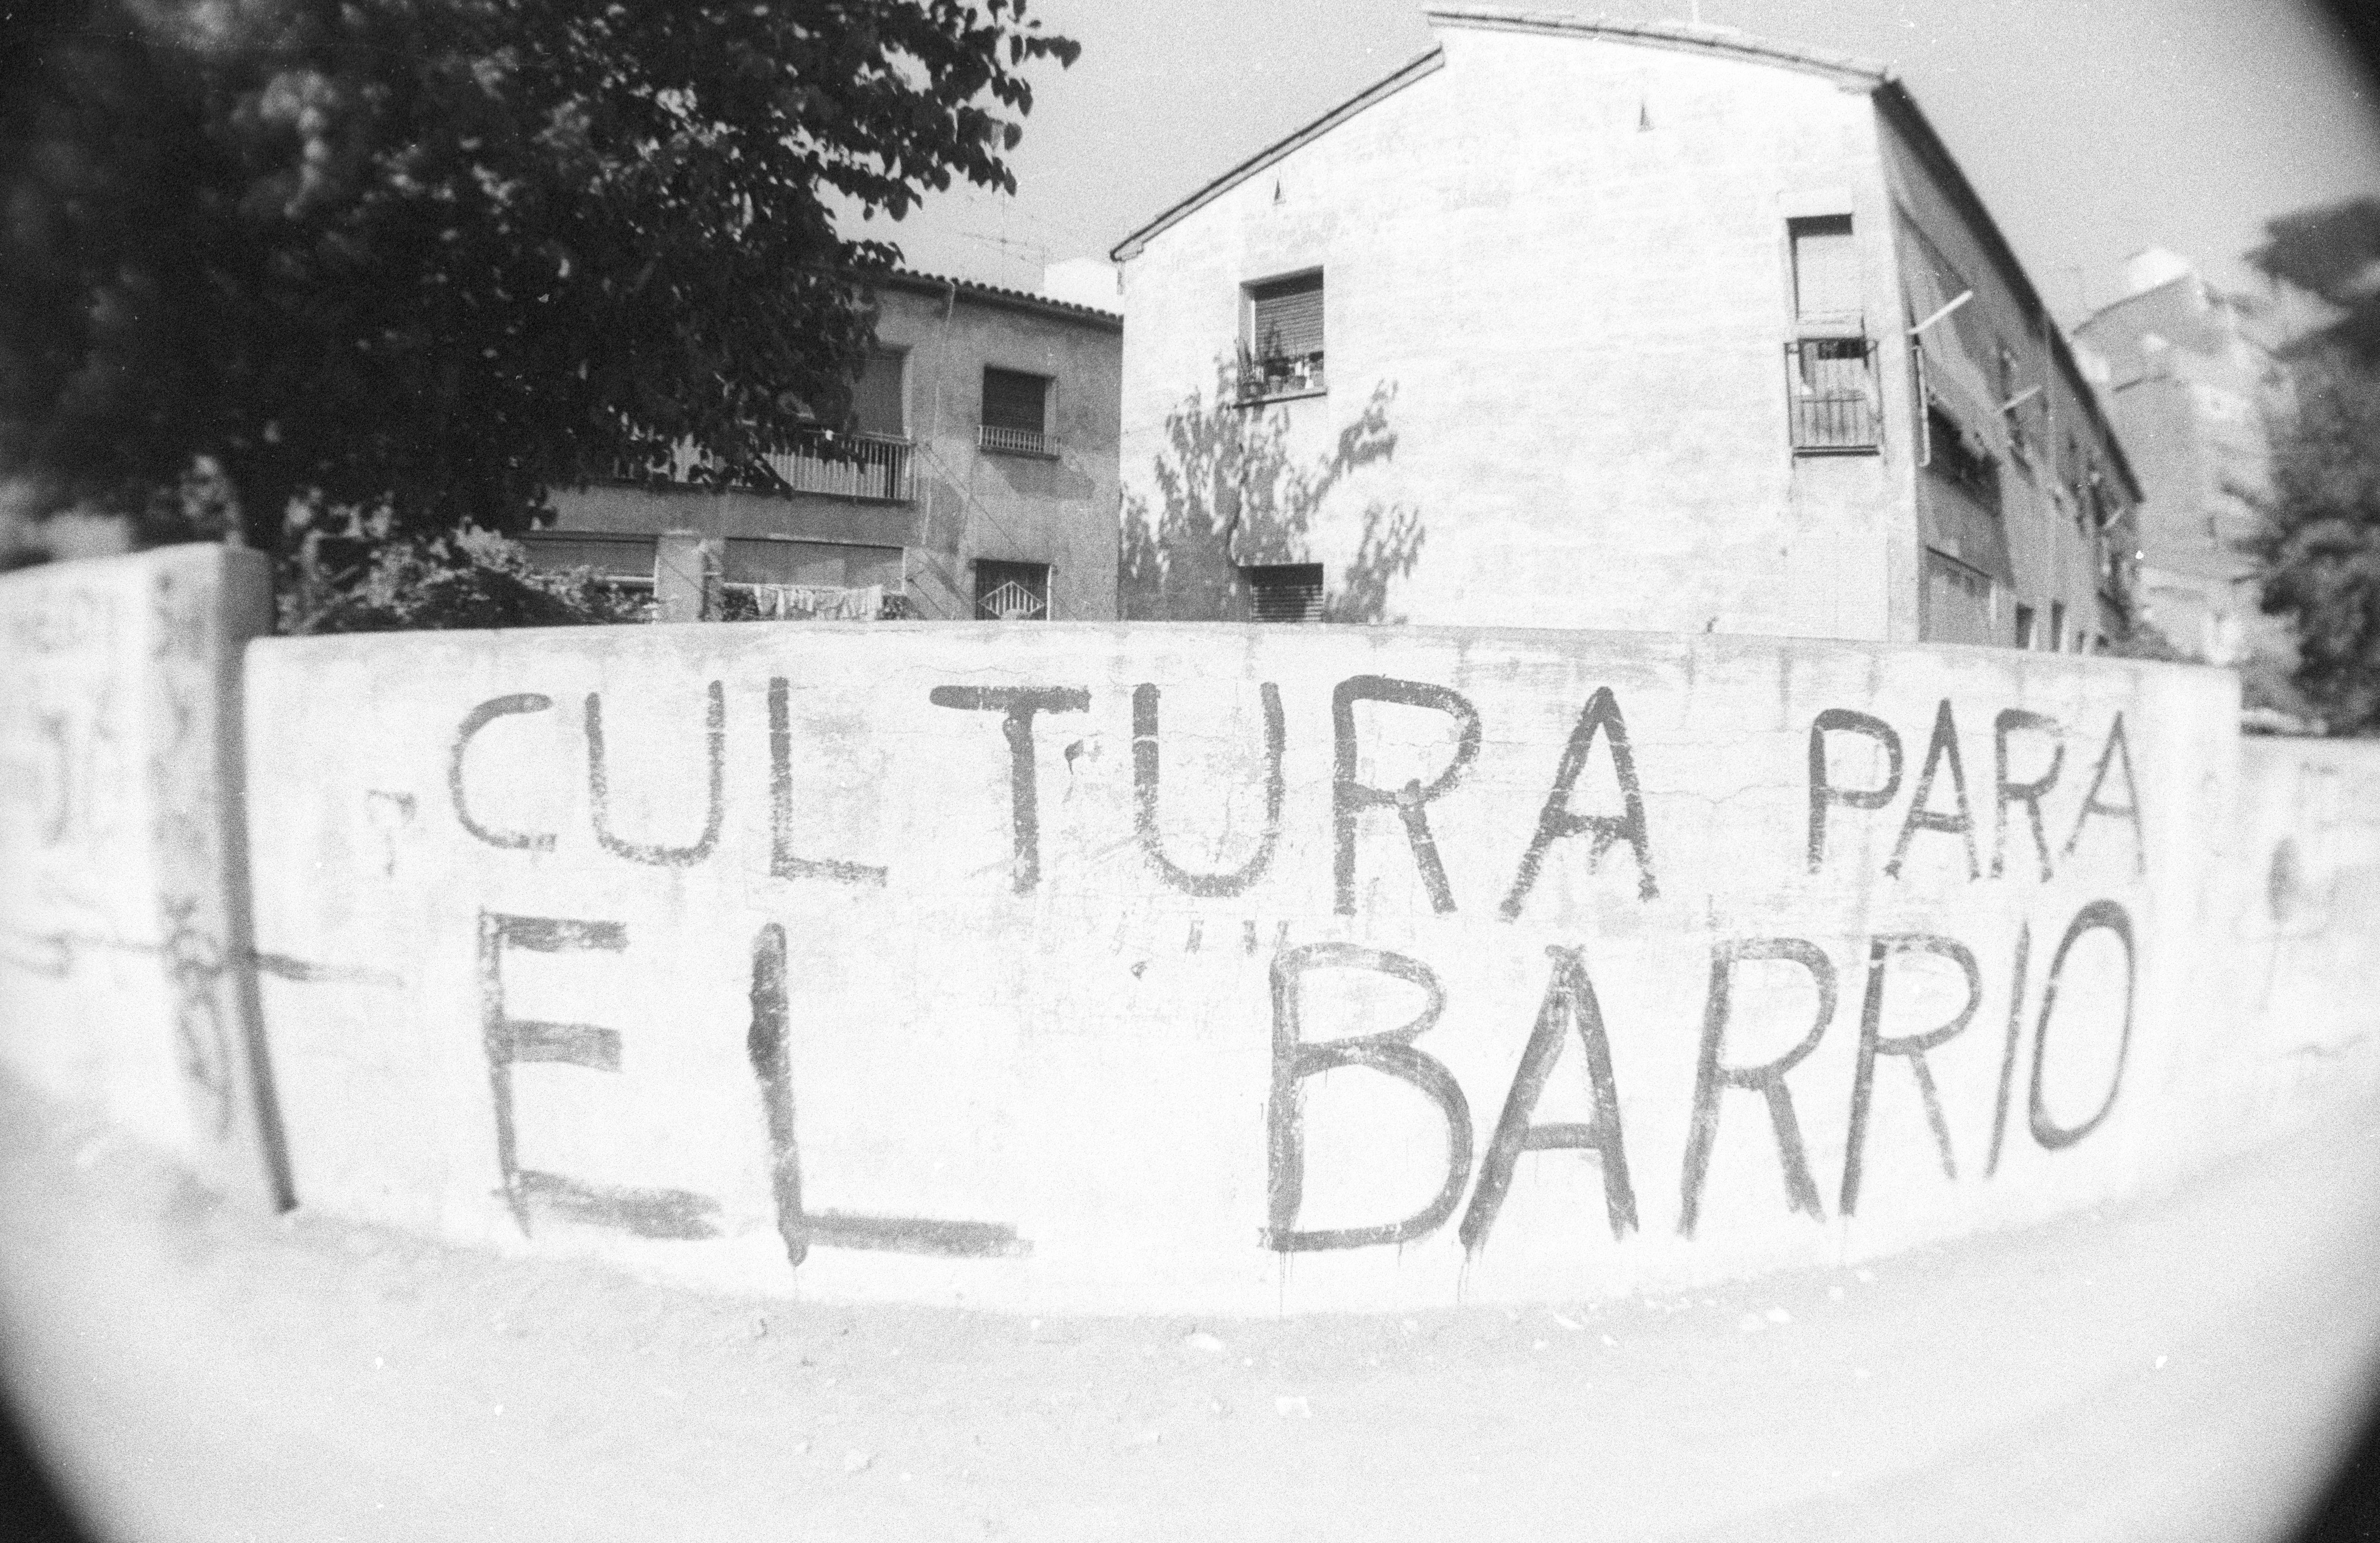 CULTURA PARA
EL BARRIO